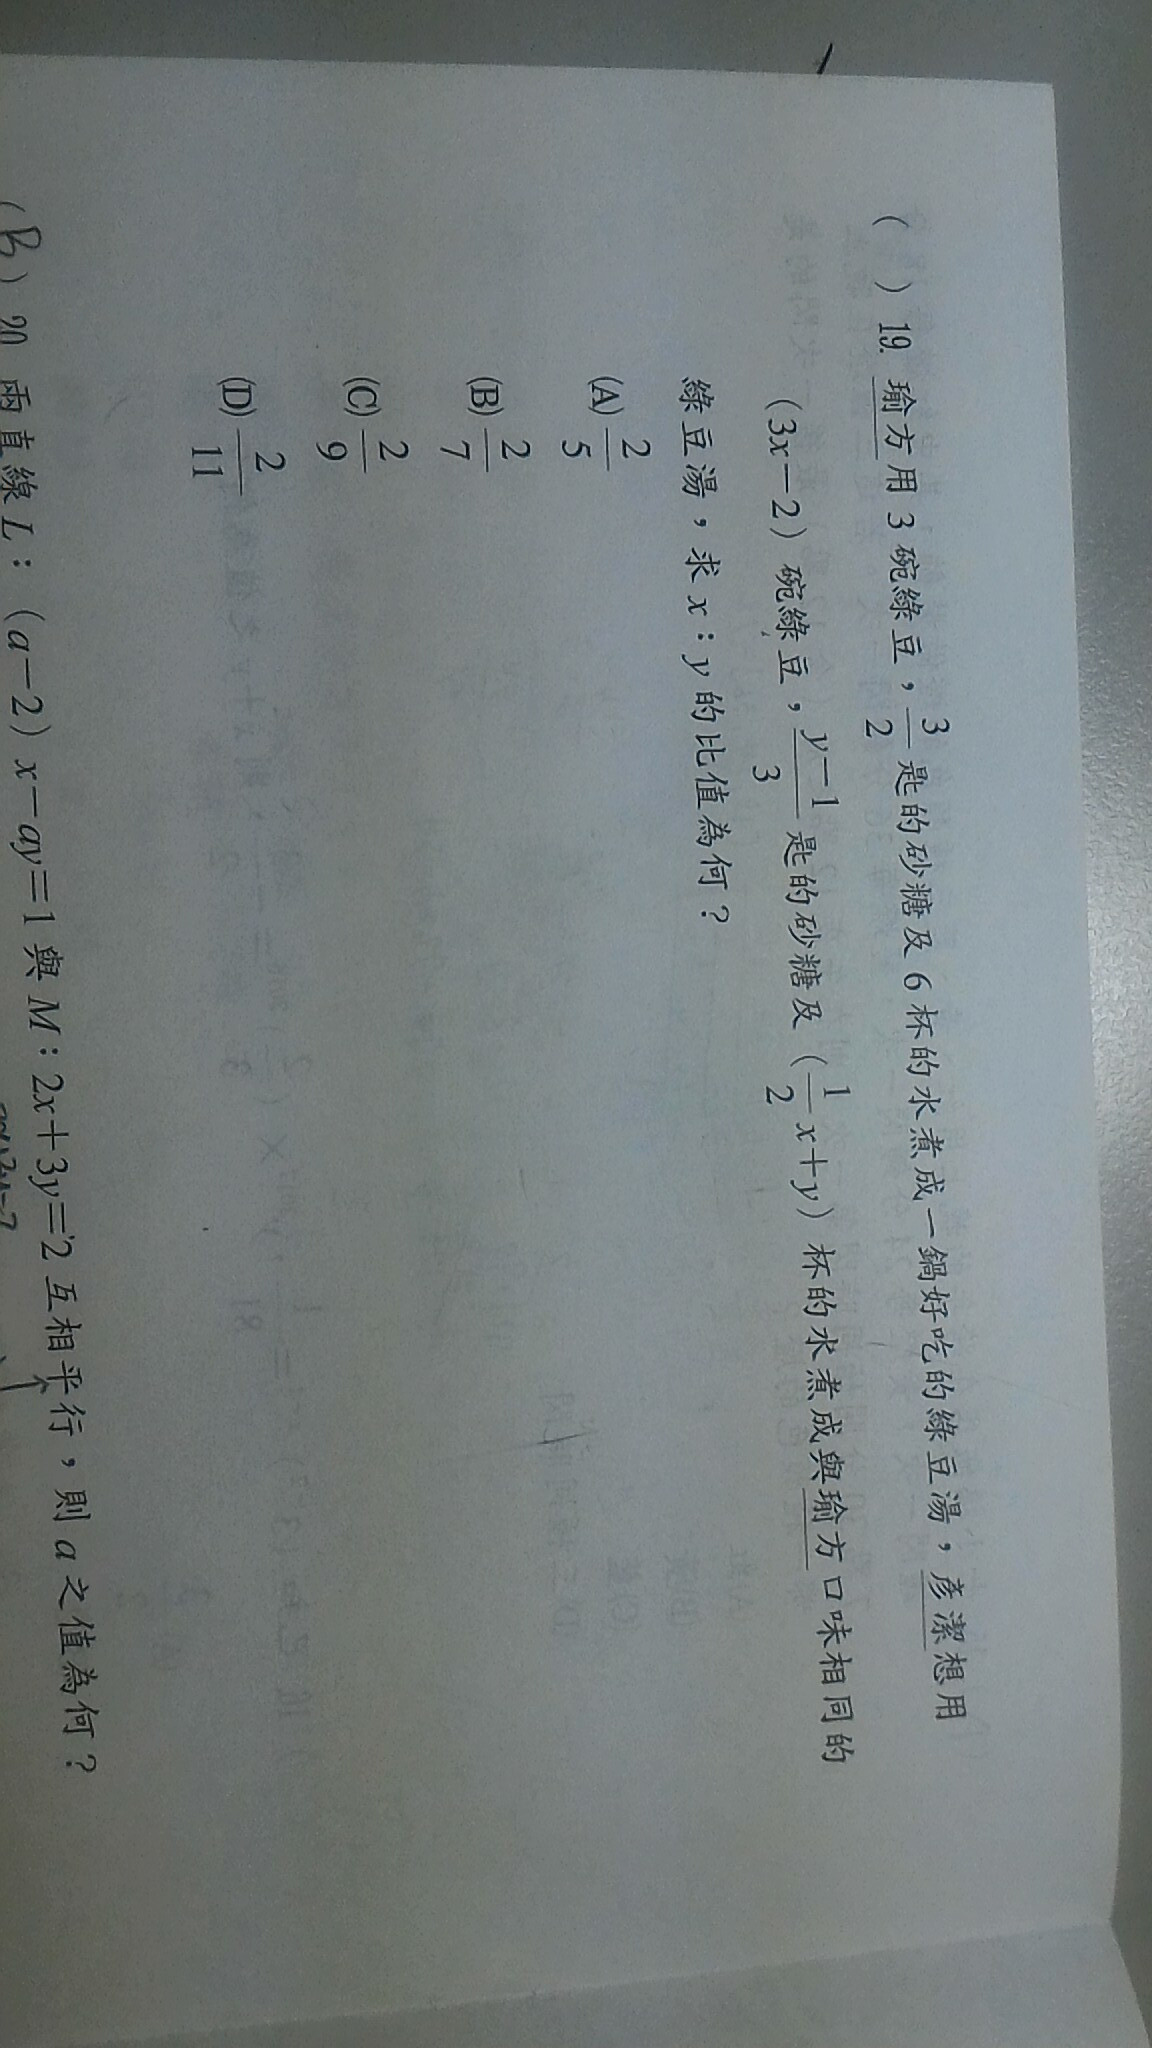 ( ) 19. 瑜方用 3 碗綠豆，3/2 匙的砂糖及 6 杯的水煮成一鍋好吃的綠豆湯，彥潔想用
(3x－2) 碗綠豆，(y－1)/3 匙的砂糖及 (1/2 x＋y) 杯的水煮成與瑜方口味相同的
綠豆湯，求 x：y 的比值為何？
(A) 2/5
(B) 2/7
(C) 2/9
(D) 2/11
(B) 20. 兩直線 L：(a－2) x－ay＝1 與 M：2x＋3y＝2 互相平行，則 a 之值為何？